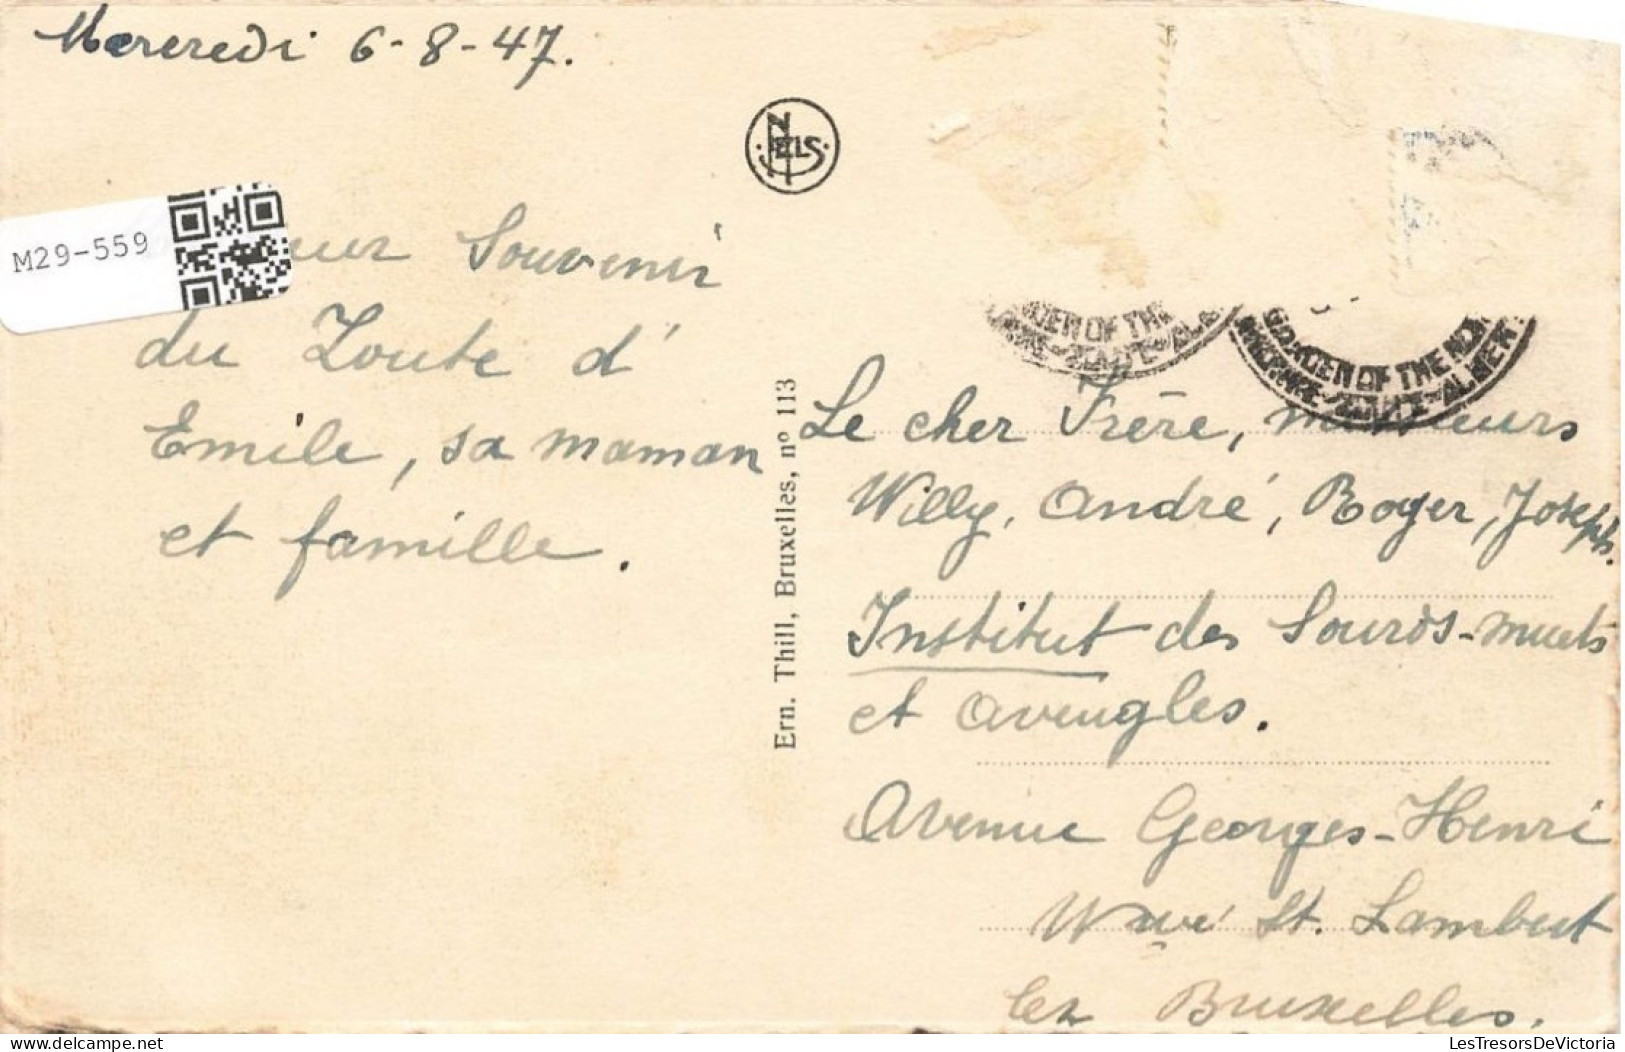 Mercredi 6-8-47.
NELS
M29-559
Souvenir
du Zoute d'
Emile, sa maman
et famille.
Ern. Thill, Bruxelles, nº 113
OF THE
OF THE
Le cher Frère, messieurs
Willy, André, Roger, Joseph.
Institut des Sourds-muets
et aveugles.
Avenue Georges-Henri
St. Lambert
lez Bruxelles.
LesTresorsDeVictoria